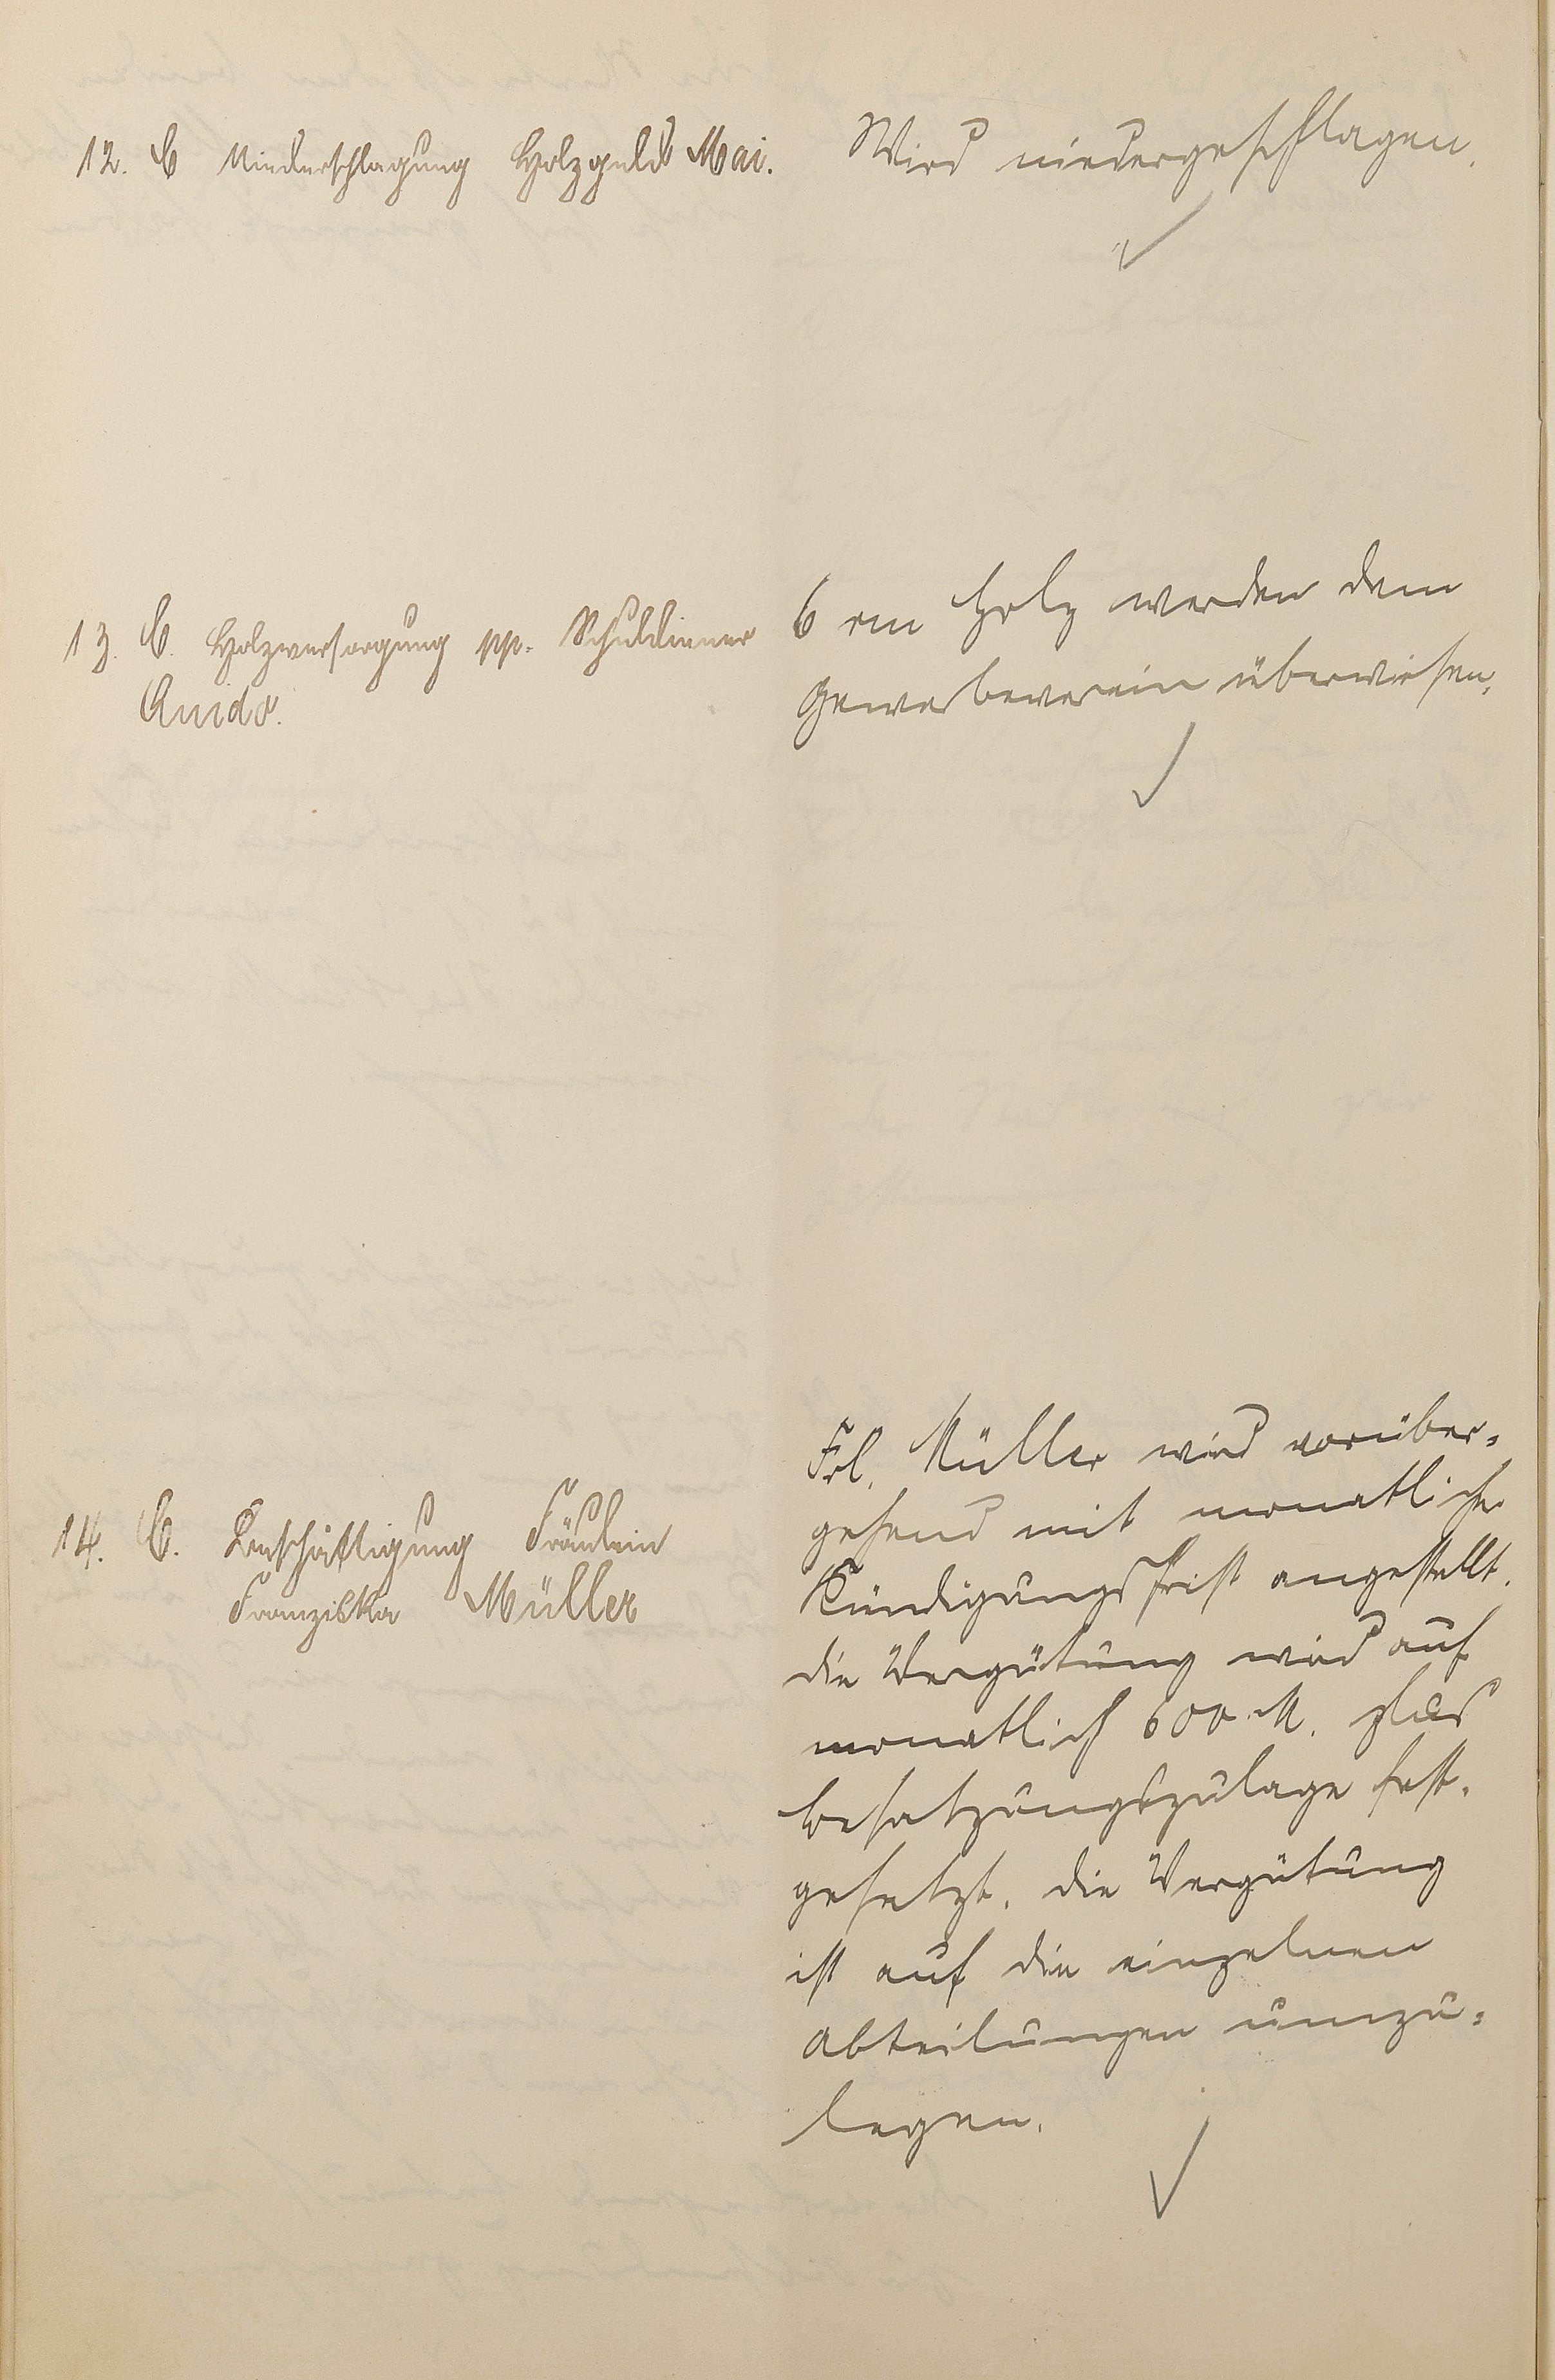 12. C Niederschlagung Holzgeld Mai.
Wird niedergeschlagen.
13. C. Holzversorgung pp. Schuldiener
6 rm Holz werden dem
Gewerbeverein überwiesen.
14. C. Beschäftigung Fräulein
Franziska Müller
Frl. Müller wird vorüber-
gehend mit monatlicher
Kündigungsfrist angestellt.
die Vergütung wird auf
monatlich 600 M. plus
Besatzungszulage fest-
gesetzt. die Vergütung
ist auf die einzelnen
Abteilungen umzu-
legen.